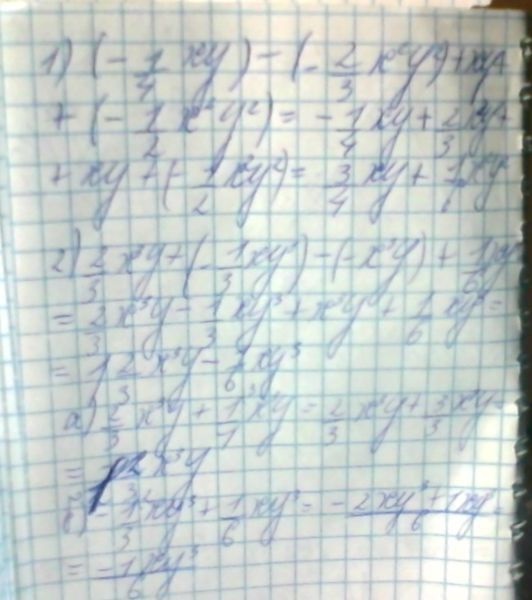 1) (- 1/4 xy) - (- 2/3 x²y²) + xy +
+ (- 1/2 x²y²) = - 1/4 xy + 2/3 x²y² +
+ xy + (- 1/2 x²y²) = 3/4 xy + 1/6 x²y²
2) 2/3 x³y + (- 1/3 xy³) - (- x³y) + 1/6 xy³
= 2/3 x³y - 1/3 xy³ + x³y + 1/6 xy³ =
= 1 2/3 x³y - 1/6 xy³
а) 2/3 x³y + 1/1 x³y = 2/3 x³y + 3/3 x³y =
= 1 2/3 x³y
б) - 1/3 xy³ + 1/6 xy³ = - 2xy³ + 1xy³ / 6 =
= - 1xy³ / 6